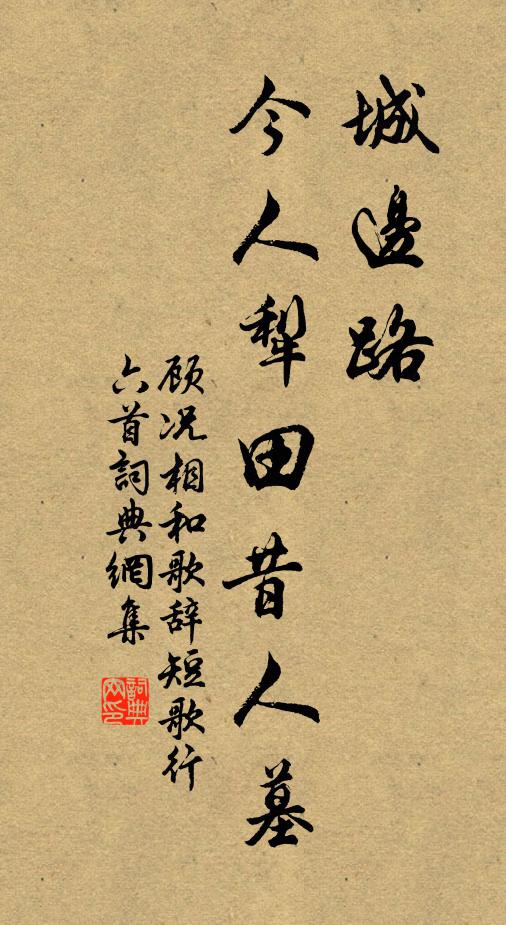 城邊路
今人犁田昔人墓
顾况相和歌辞短歌行
六首詞典網集
詞典網印